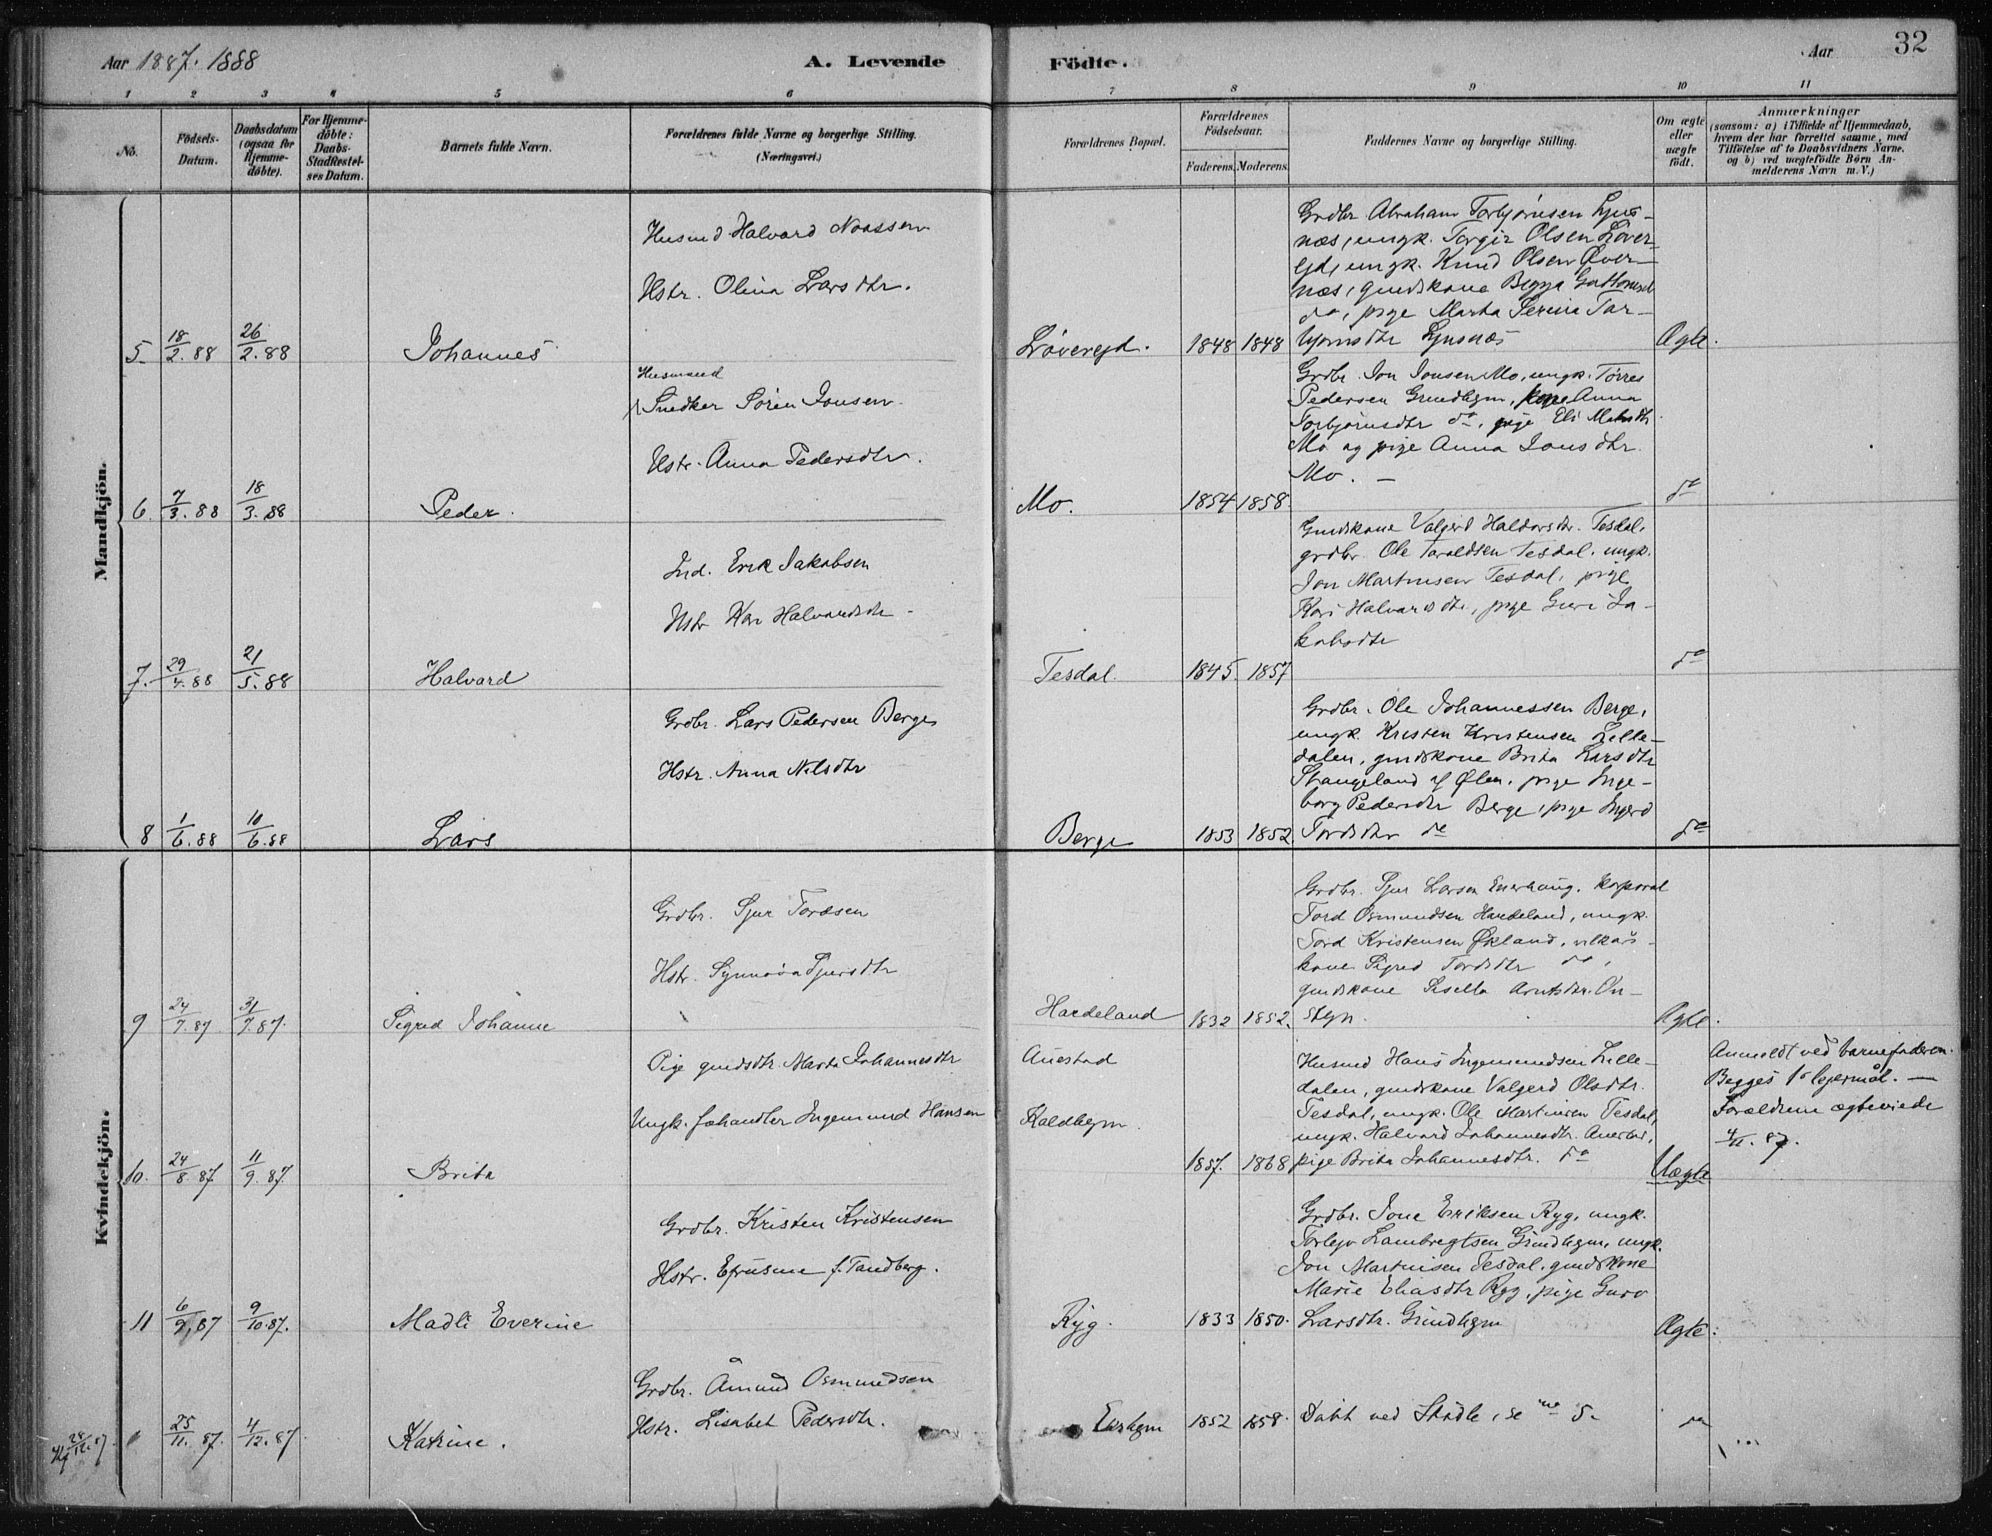 Aar 1887. 1888
A. Levende
Födte.
Aar
32
1 2 3 4 5 6 7 8 9 10 11
No.
Födsels-
Datum.
Daabsdatum
(ogsaa for
Hjemme-
døbte).
For Hjemme-
døbte:
Daabs-
Stadfæstel-
ses Datum.
Barnets fulde Navn.
Forældrenes fulde Navne og borgerlige Stilling.
(Næringsvei.)
Forældrenes Bopæl.
Forældrenes
Födselsaar.
Faderens. Moderens.
Faddernes Navne og borgerlige Stilling.
Om ægte
eller
uægte
født.
Anmærkninger
(saasom: a) i Tilfælde af Hjemmedaab,
hvem der har forrettet samme, med
Tilföielse af to Daabsvidners Navne,
og b) ved uægtefödte Börn An-
melderens Navn m. V.)
Mandkjön.
5. 18/2. 88 26/2. 88
Johannes
Husmd Halvard Noassen
Hstr. Olina Larsdtr.
Løverejd. 1848 1848
Grdbr. Abraham Torbjørnsen Ljus-
næs, ungk. Torgir Olsen Løver-
ejd, ungk. Knud Olsen Øver-
næs, gmdskone
do, pige Marta Serina Tor-
bjørnsdtr Ljusnæs
Ægte.
6. 7/3. 88 18/3. 88
Peder.
Husmand
Snedker Sören Jonsen
Hstr. Anna Pedersdtr.
Mo. 1854 1858.
Grdbr. Jon Jonsen Mo, ungk. Tørres
Pedersen Grindhejm, Anna
Torbjørnsdtr do, pige Eli
Mo og pige Anna Jonsdtr
Mo. —
do
7. 29/4. 88 21/5. 88
Halvard
Ind. Erik Jakobsen
Hstr Kari Halvardsdtr
Tesdal. 1845. 1857
Gmdskone Valgerd Haldorsdtr. Tesdal,
grdbr. Ole Taraldsen Tesdal, ungk.
Jon Martinsen Tesdal, pige
Kari Halvardsdtr, pige Guri Ja-
kobsdtr
do
8 1/6. 88 10/6. 88
Lars
Grdbr. Lars Pedersen Berge
Hstr. Anna Nilsdtr
Berge 1853 1852.
Grdbr. Ole Johannessen Berge,
ungk. Kristen Kristensen Lille-
dalen, gmdskone Brita Larsdtr
Stangeland af Ølen, pige Inge-
borg Pedersdtr Berge, pige Ingerd
Tordsdtr do
do
Kvindekjön.
9 24/7. 87 31/7. 87.
Sigred Johanne
Grdbr. Sjur Tordsen
Hstr. Synnøva Sjursdtr
Hardeland 1832 1852.
Grdbr. Sjur Larsen Enerhaug, korporal
Tord Osmundsen Hardeland, ungk.
Tord Kristensen Økland, vilkårs-
kone Sigred Tordsdtr do,
gmdskone Sisella Arntsdtr. Øn-
stejn.
Ægte.
10. 24/8 87 11/9. 87.
Brita
Pige gmdsdtr. Marta Johannesdtr
Ungk. fæhandler Ingemund Hansen
Auestad
Kaldhejm.
1857. 1868
Husmd Hans Ingemundsen Lille-
dalen, gmdskone Valgerd Olsdtr.
Tesdal, ungk. Ole Martinsen Tesdal,
ungk. Halvard Johannesdtr. Auestad,
pige Brita Johannesdtr. do
Uægte
Anmeldt ved barnefaderen.
Begges 1o lejermål. —
Forældrene ægteviede
4/11. 87.
11 6/9. 87 9/10. 87.
Madli Everine
Grdbr. Kristen Kristensen
Hstr. Efrusine f. Tandberg.
Ryg. 1833 1850.
Grdbr. Jone Eriksen Ryg, ungk.
Torlejv Lambregtsen Grindhejm, ungk.
Jon Martinsen Tesdal, gmdskone
Marie Eliasdtr Ryg, pige Guro
Larsdtr. Grindhejm
Ægte.
25/11. 87. 4/12. 87
Katrine.
Grdbr. Åmund Osmundsen
Hstr. Lisabet Pedersdtr.
1852 1858.
Døbt ved Stødle, se no 5.